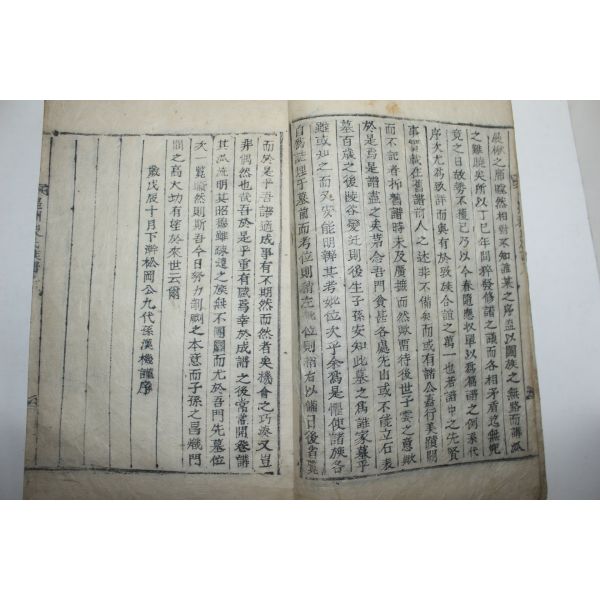 嚴楸之席賑然相對不知誰某之序盖以闔族之無賂而講派
之難曉矣所以丁巳年間粹發修譜之議而各相矛盾迄無究
竟之日故勢不獲已乃以今春隨應收單以爲篇譜之例氶代
序次尤爲致詳而與有於敦族合誼之萬一也若譜中之先賢
事實載在舊譜前人之述非不備矣而或有諸公嘉行美蹟闕
而不記者抑舊譜時未及廣摭而然歟留待後世子雲之意歟
於是焉是譜盡之矣第念吾門貧甚各處先山或不能立石表
墓百歲之後陵谷變迁則後生子孫安知此墓之爲誰家墓乎
雖或知之而又安能明辨其考妣位次乎余爲是懼使諸族各
自爲誌埋乎墓前而考位則誌左妣位則誌右以備日後省覽
而於是乎吾譜適成事有不期然而然者矣機會之巧湊又豈
非偶然也哉吾於是乎重有感焉幸於成譜之後常常開卷講
其派流明其昭穆雖疎遠之族無不團圓而尤於吾門先墓位
次一覽瞭然則斯吾今日努力剞劂之本意而子孫之昌熾門
閭之高大功有望於來世云爾
歲戊辰十月下澣松岡公九代孫漢機謹序